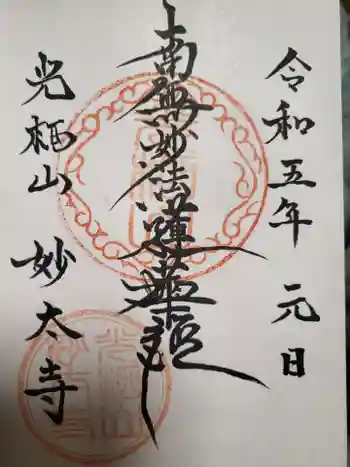 令和五年 元日
南無妙法蓮華経
光栖山 妙太寺